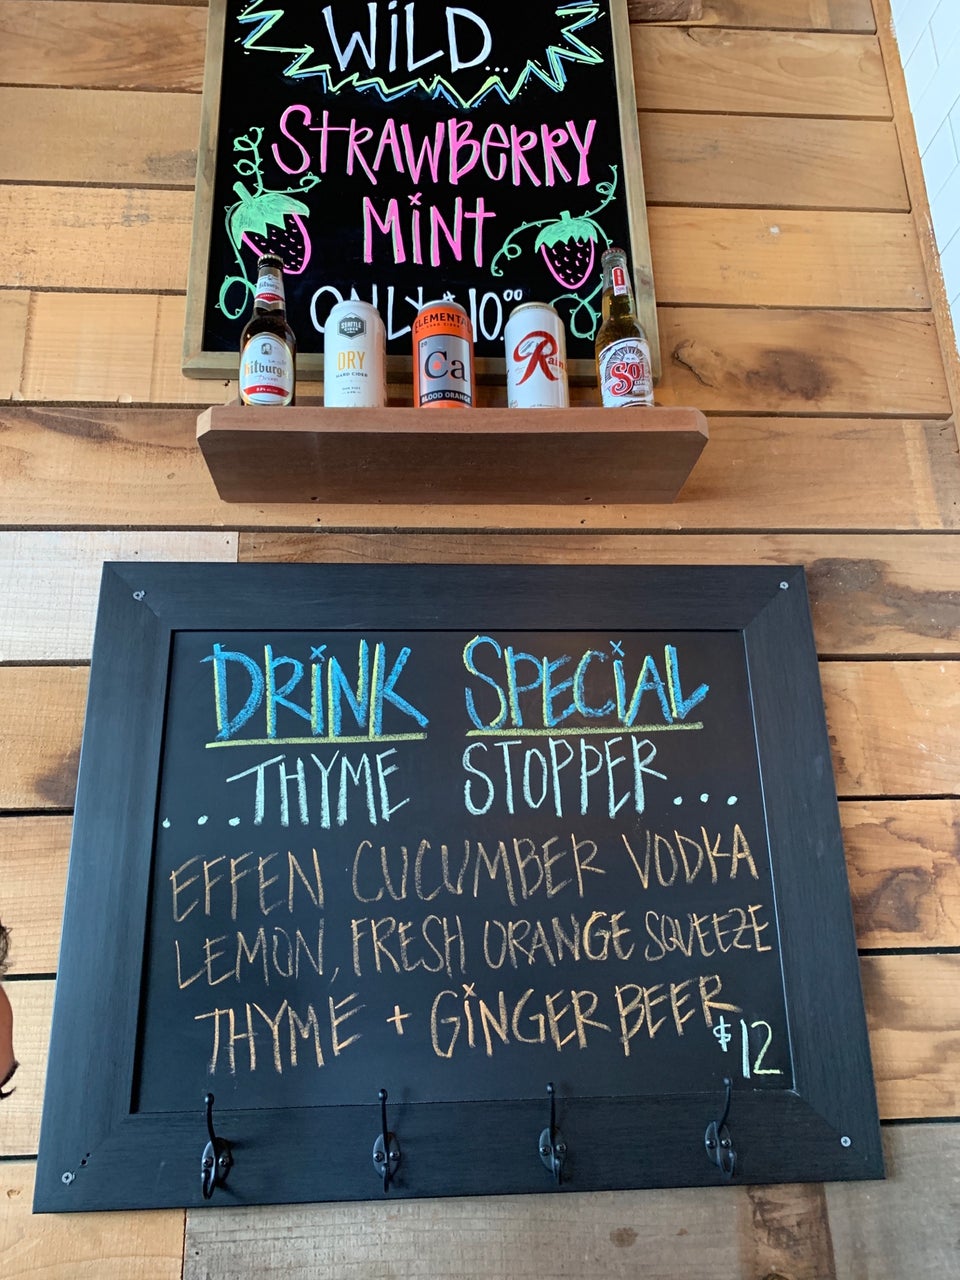 WiLD...
STRAWBERRY
MiNT
ONLY $10.00
Bitburger
SEATTLE
CIDER
DRY
HARD CIDER
ELEMENTAL
HARD CIDER
20
Ca
BLOOD ORANGE
Rain
Sol
DRiNK SPECiAL
...THYME STOPPER...
EFFEN CUCUMBER VODKA
LEMON, FRESH ORANGE SQUEEZE
THYME + GiNGER BEER
$12